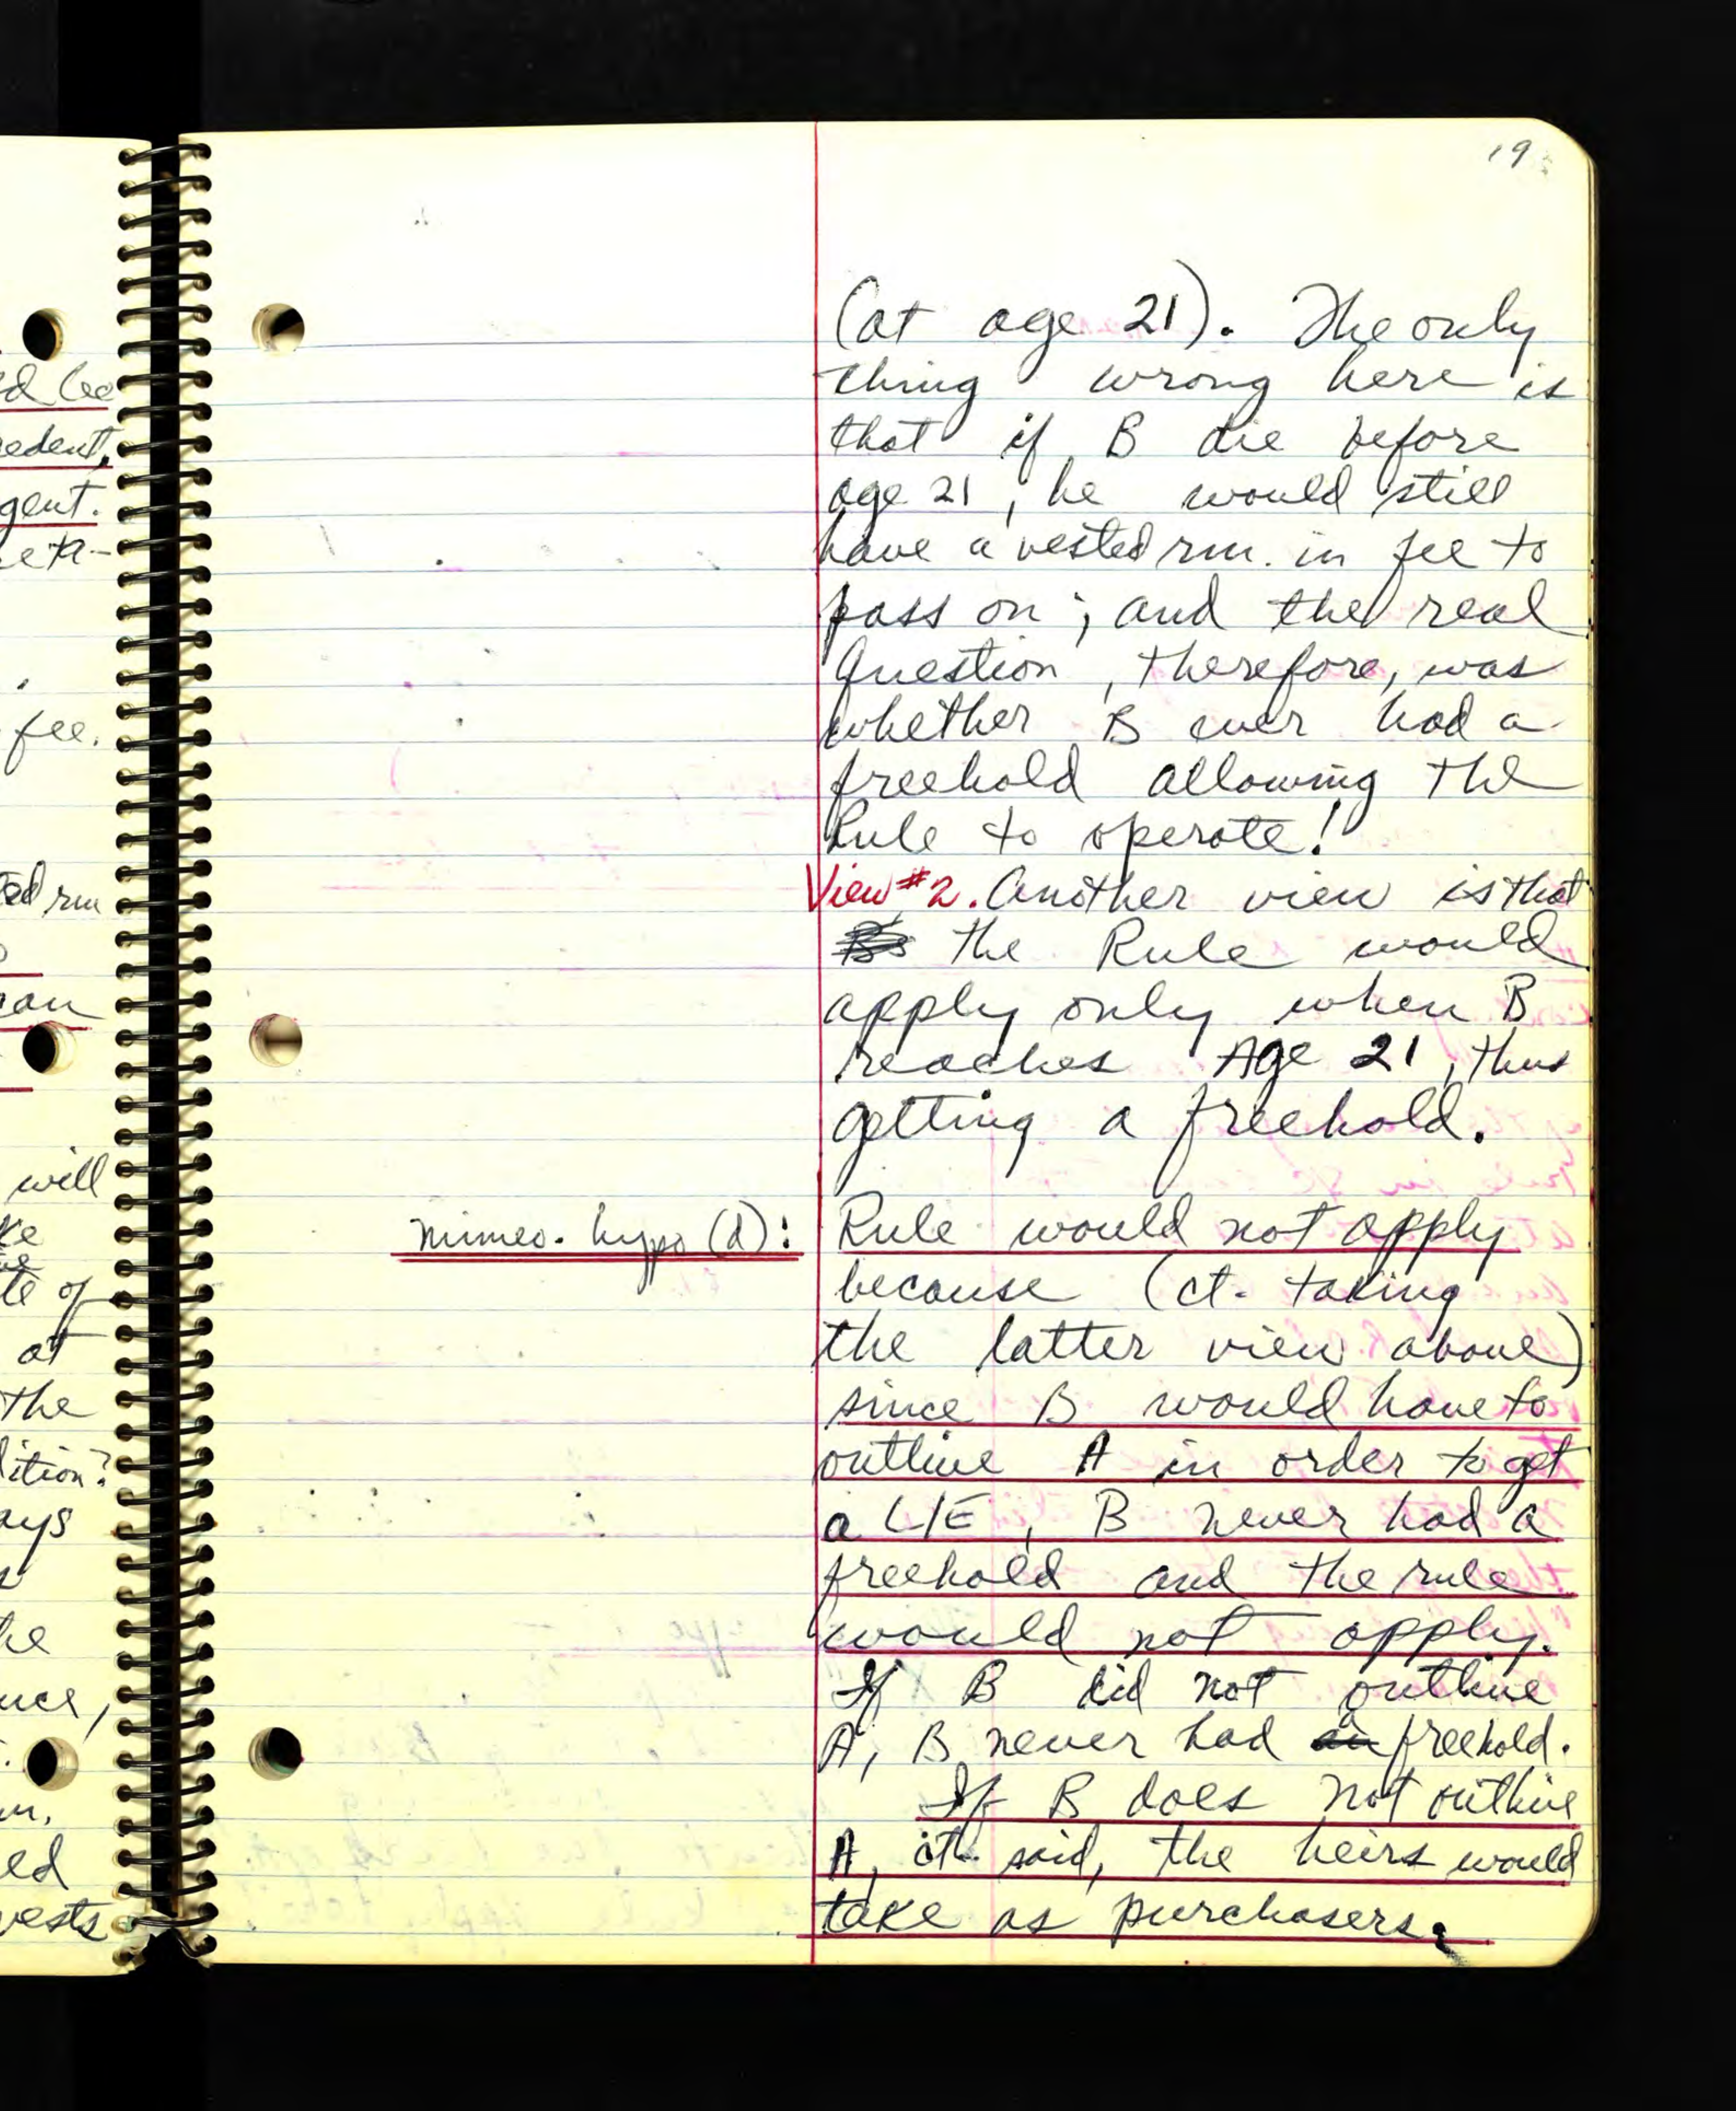 19
(at age 21). The only
thing wrong here is
that if B die before
age 21, he would still
have a vested rm. in fee to
pass on; and the real
question, therefore, was
whether B ever had a
freehold allowing the
Rule to operate!
View #2. Another view is that
the Rule would
apply only when B
reaches Age 21, thus
getting a freehold.
mimeo. hypo (d): Rule would not apply
because (ct. taking
the latter view above)
since B would have to
outlive A in order to get
a L/E, B never had a
freehold and the rule
would not apply.
If B did not outlive
A, B never had a freehold.
If B does not outlive
A, ct. said, the heirs would
take as purchasers.
edent,
gent.
fee.
ed rm
will
te of
at
the
dition?
ays
he
uce,
ed
vests